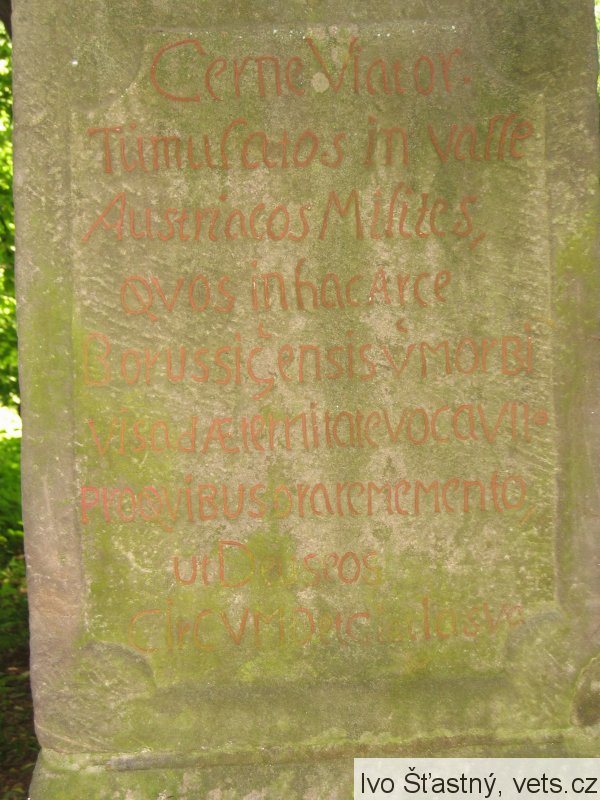 Cerne Viator.
Tumulatos in valle
Austriacos Milites,
QVos in hac Arce
Borussic ensis v Morbi
vis ad Æternitate vocaVIt.
PRO QVIBUS orare MeMENTO,
ut Deus eos
Ivo Šťastný, vets.cz